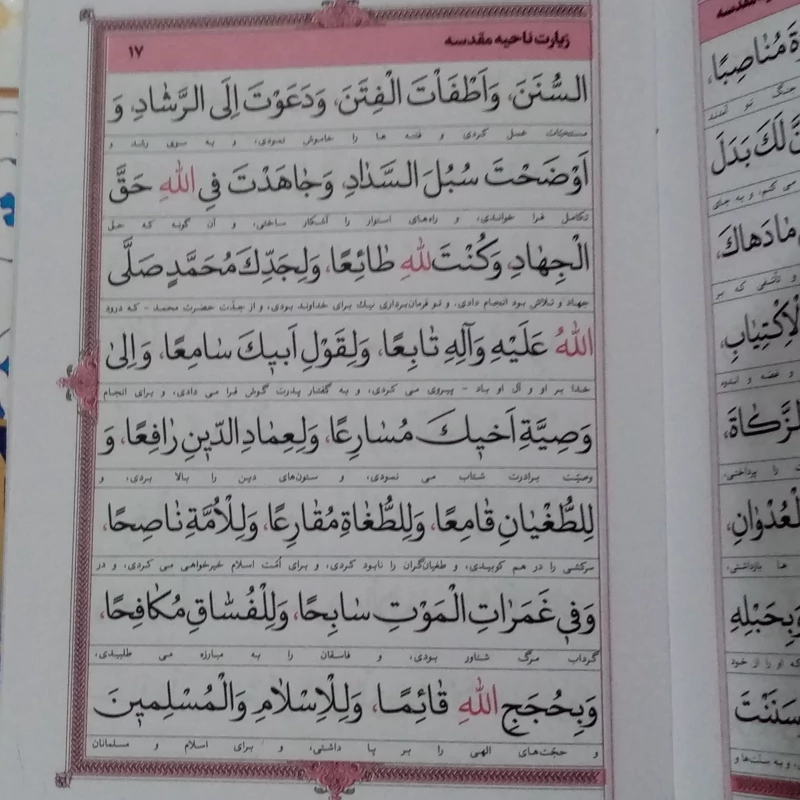 زیارت ناحیه مقدسه ۱۷
السُّنَنَ، وَاَطْفَاْتَ الْفِتَنَ، وَدَعَوْتَ اِلَی الرَّشٰادِ، وَ
مستحبّات عمل کردی و فتنه ها را خاموش نمودی، و به سوی رشد و
اَوْضَحْتَ سُبُلَ السَّدٰادِ، وَجٰاهَدْتَ فِی اللهِ حَقَّ
تکامل فرا خواندی، و راه‌های استوار را آشکار ساختی، و آن گونه که حق
الْجِهٰادِ، وَکُنْتَ لِلّٰهِ طٰائِعًا، وَلِجَدِّكَ مُحَمَّدٍ صَلَّی
جهاد و تلاش بود انجام دادی، و تو فرمان‌برداری نیك برای خداوند بودی، و از جدّت حضرت محمد - که درود
اللهُ عَلَیْهِ وَآلِهِ تٰابِعًا، وَلِقَوْلِ اَبیٖكَ سٰامِعًا، وَاِلیٰ
خدا بر او و آل او باد - پیروی می کردی، و به گفتار پدرت گوش فرا می دادی، و برای انجام
وَصِیَّةِ اَخیٖكَ مُسٰارِعًا، وَلِعِمٰادِ الدّیٖنِ رٰافِعًا، وَ
وصیّت برادرت شتاب می نمودی، و ستون‌های دین را بالا بردی، و
لِلطُّغْیٰانِ قٰامِعًا، وَلِلطُّغٰاةِ مُقٰارِعًا، وَلِلْاُمَّةِ نٰاصِحًا،
سرکشی را در هم کوبیدی، و طغیان‌گران را نابود کردی، و برای اُمّت اسلام خیرخواهی می کردی، و در
وَفیٖ غَمَرٰاتِ الْمَوْتِ سٰابِحًا، وَلِلْفُسّٰاقِ مُکٰافِحًا،
گرداب مرگ شناور بودی، و فاسقان را به مبارزه می طلبیدی،
وَبِحُجَجِ اللهِ قٰائِمًا، وَلِلْاِسْلٰامِ وَالْمُسْلِمیٖنَ
و حجّت‌های الهی را بر پا داشتی، و برای اسلام و مسلمانان
مُنٰاصِبًا،
جنگ تو آمدند
لَكَ بَدَلَ
می کنم، و به جای
مٰادَهٰاكَ،
و تأسّفی که بر
الْاِکْتِیٰابِ،
و غصّه و اندوه
الزَّکٰاةَ،
را پرداختی،
الْعُدْوٰانِ،
ها بازداشتی،
وَبِحَبْلِهِ
که او را از خود
وَسَنَنْتَ
و به سنّت‌ها و